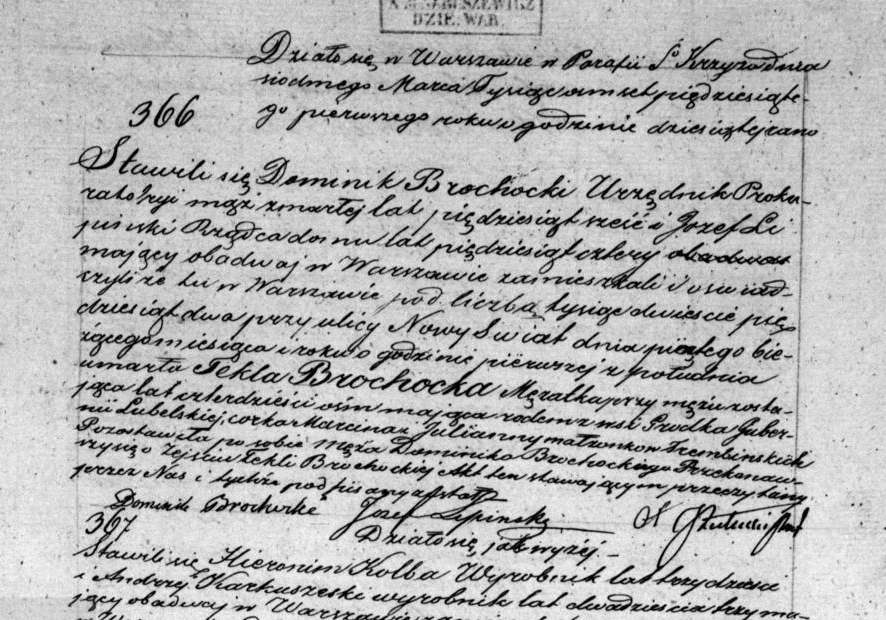 X M. NABUSZEWISZ
DZIE. WAR.
Działo się w Warszawie w Parafii Sgo Krzyża dnia
siodmego Marca Tysiąc ośmset pięćdziesiąte-
366
go pierwszego roku o godzinie dziesiątej rano
Stawili się Dominik Brochocki Urzędnik Proku-
ratoryi mąż zmarłej lat pięćdziesiąt sześć i Jozef Li
piński Rządca domu lat pięćdziesiąt cztery obadwaj
mający obadwaj w Warszawie zamieszkali i oświad-
czyli że tu w Warszawie pod liczbą tysiąc dwieście pięć
dziesiąt dwa przy ulicy Nowy Swiat dnia piątego bie-
żącego miesiąca i roku o godzinie pierwszej z południa
umarła Tekla Brochocka Mężatka przy mężu zosta-
jąca lat czterdzieści ośm mająca rodem z wsi Grodka Guber-
nii Lubelskiej, corka Marcina i Julianny małżonkow Trembinskich
Pozostawiła po sobie męża Dominika Brochockiego Przekonaw-
szy się o zejściu Tekli Brochockiej Akt ten stawającym przeczytany
przez Nas i tychże podpisany został
Dominik Brochocki Jozef Lipinski
367 Działo się jak wyżej.
Stawili się Hieronim Kolba Wyrobnik lat trzydzieści
i Andrzej Karkuszeski wyrobnik lat dwadzieścia trzy ma-
jący obadwaj w Warszawie